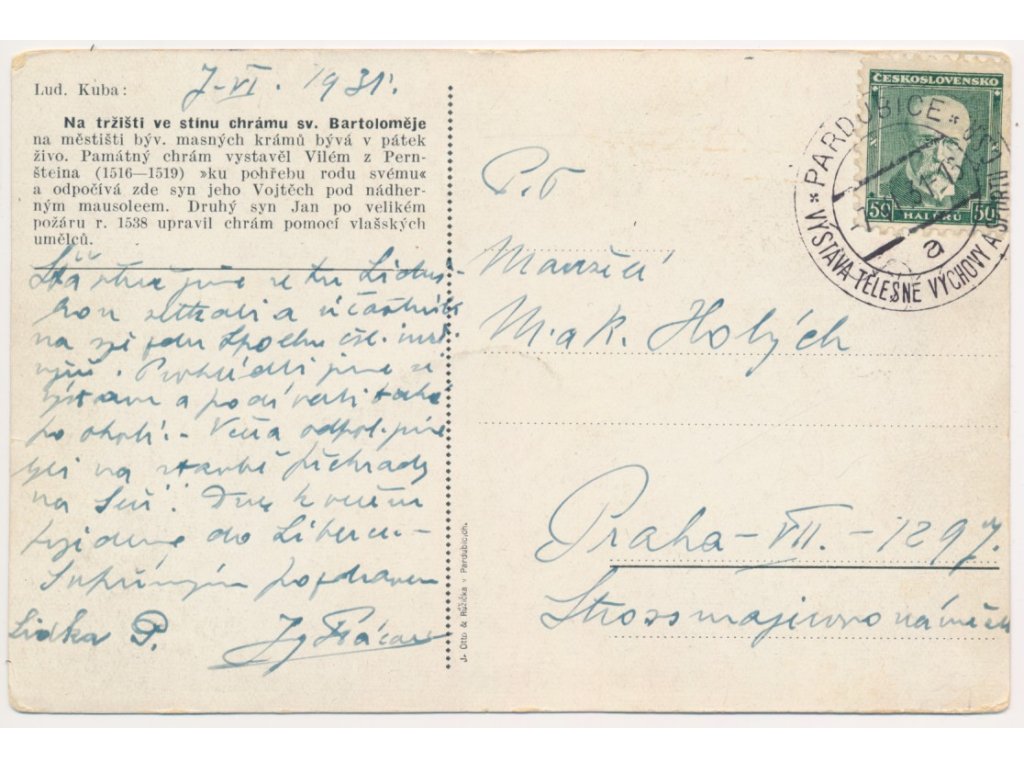 Lud. Kuba:
7-VI. 1931.
Na tržišti ve stínu chrámu sv. Bartoloměje
na městišti býv. masných krámů bývá v pátek
živo. Památný chrám vystavěl Vilém z Pern-
šteina (1516—1519) »ku pohřebu rodu svému«
a odpočívá zde syn jeho Vojtěch pod nádher-
ným mausoleem. Druhý syn Jan po velikém
požáru r. 1538 upravil chrám pomocí vlašských
umělců.
Šťastně jsme se tu s Lidus-
kou setkali a účastnili
na sjezdu Spolku čsl.
Prohlédli jsme si
výstavu a podívali také
po okolí. - Včera odpol. jsme
byli na stavbě přehrady
na Seči. Dnes k večeru
do Liberce.-
S upřímným pozdravem
Lidka P.
J. Otto & Růžička v Pardubicích.
ČESKOSLOVENSKO
50 HALÉŘŮ 50
* PARDUBICE *
VÝSTAVA TĚLESNÉ VÝCHOVY A SPORTU
a
P.T
Manželé
M. a K. Holých
Praha - VII. - 1297.
Strossmajerovo náměstí